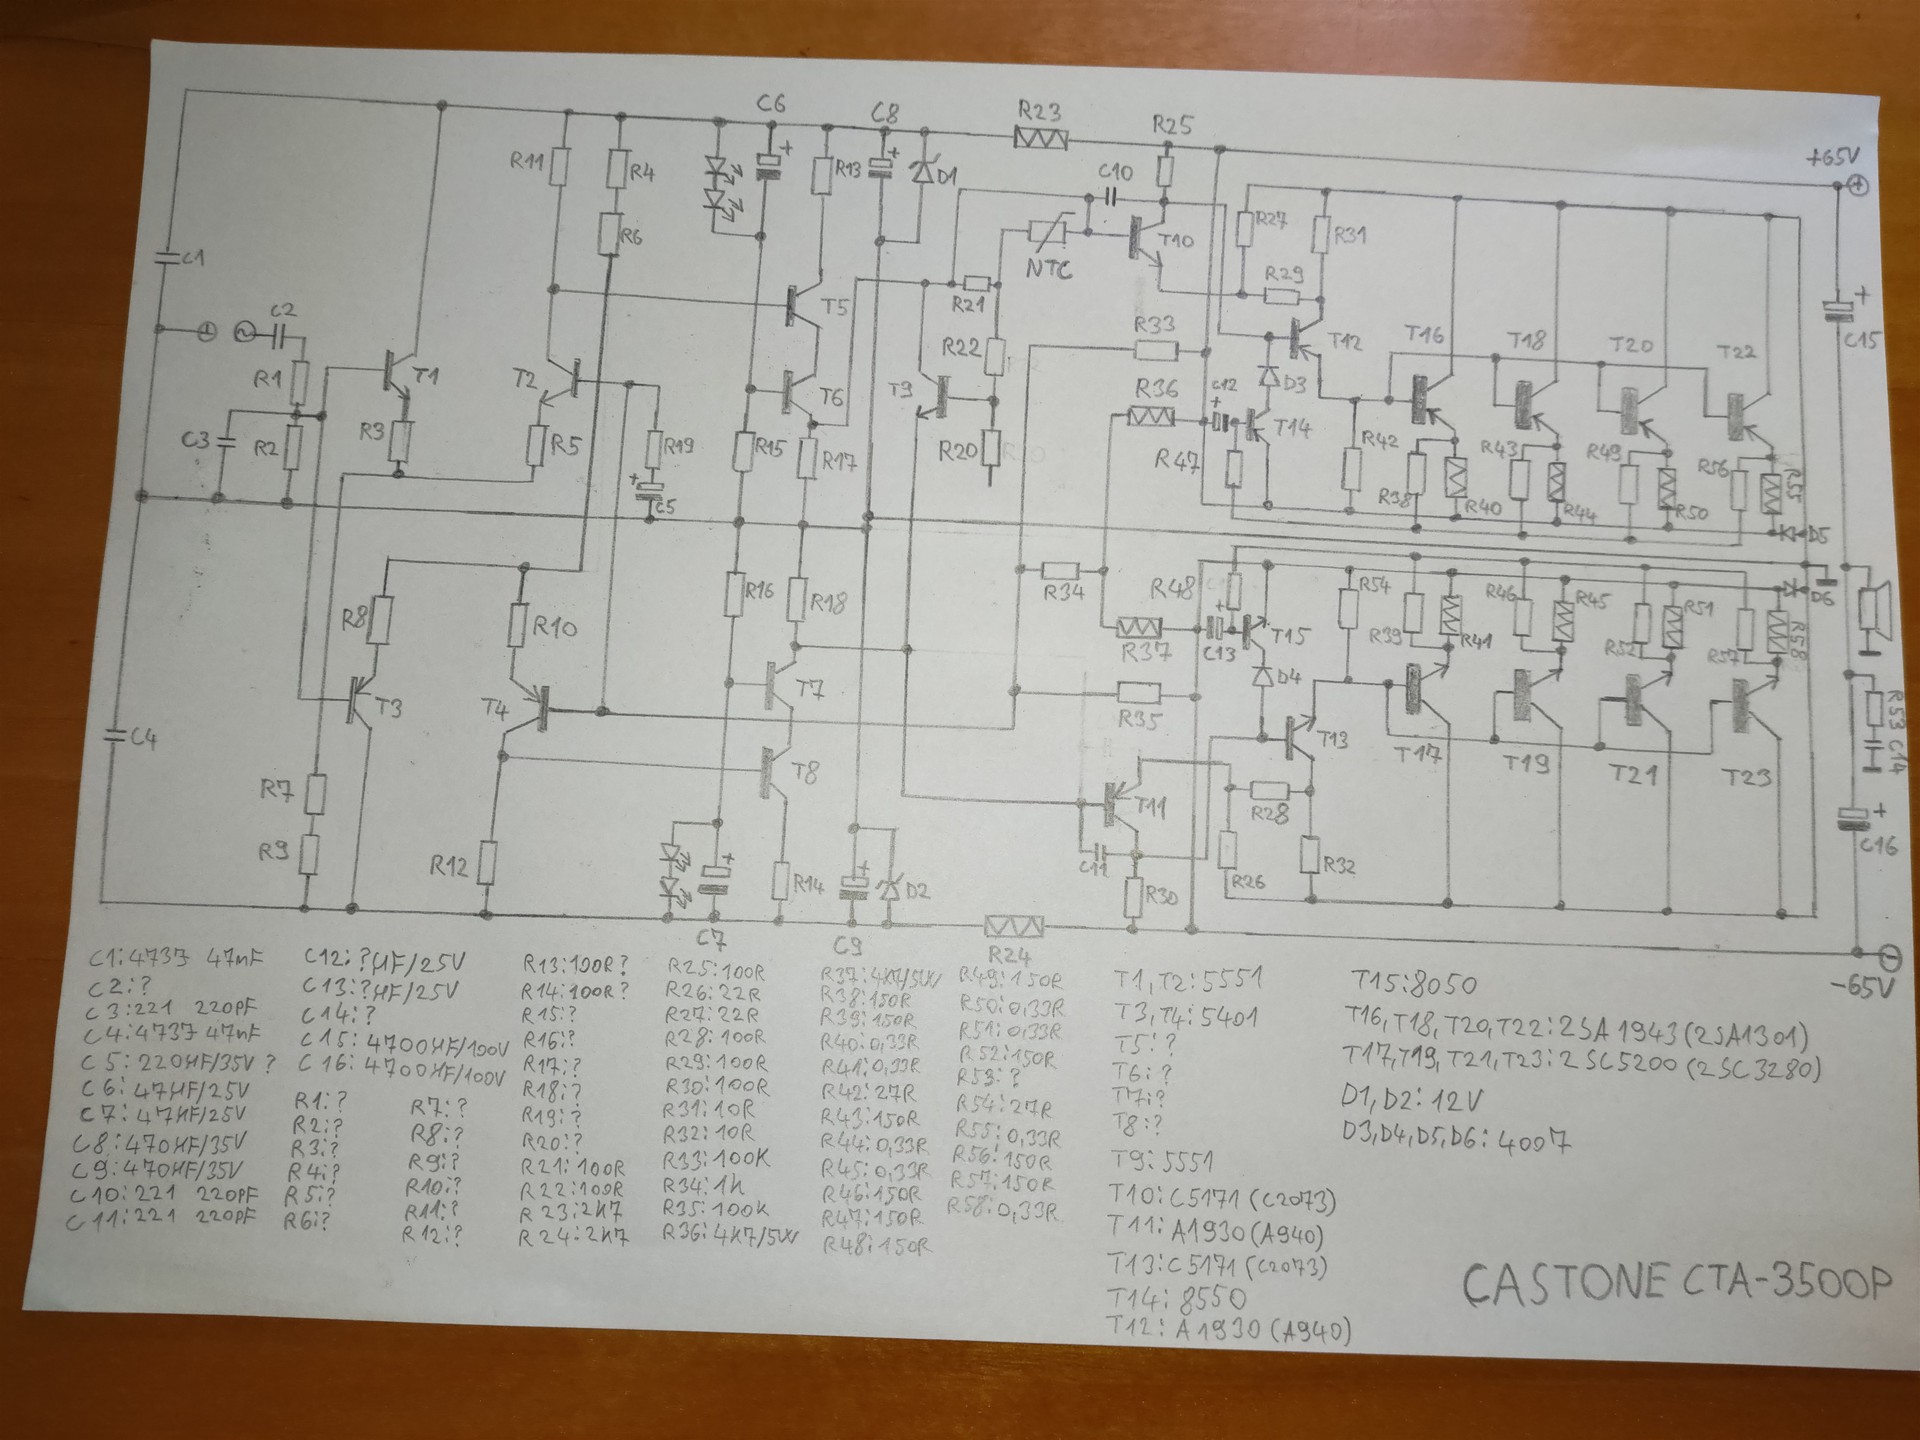 C6
C8
R23
R25
+65V
R11
R4
R13
D1
C10
R27
R31
R6
T10
NTC
C1
R29
T5
R21
C2
C15
R33
T12
T16
T18
T20
T22
R22
R1
T1
T2
T6
T9
R36
C12
D3
C3
R2
R3
R5
R19
R15
R17
R20
R47
T14
R42
R43
R49
R56
R55
R38
R40
R44
R50
C5
D5
R16
R18
R34
R48
R54
R46
R45
R51
D6
R8
R10
R37
C13
T15
R39
R41
R52
R57
R58
T3
T4
T7
D4
R35
T13
T17
T19
T21
T23
R53
C14
C4
T8
R7
T11
R28
C16
R9
R12
R14
D2
C11
R30
R26
R32
C7
C9
R24
-65V
C1:473J 47nF
C2:?
C3:221 220pF
C4:473J 47nF
C5:220µF/35V ?
C6:47µF/25V
C7:47µF/25V
C8:470µF/35V
C9:470µF/35V
C10:221 220pF
C11:221 220pF
C12:?µF/25V
C13:?µF/25V
C14:?
C15:4700µF/100V
C16:4700µF/100V
R1:?
R2:?
R3:?
R4:?
R5:?
R6:?
R7:?
R8:?
R9:?
R10:?
R11:?
R12:?
R13:100R?
R14:100R?
R15:?
R16:?
R17:?
R18:?
R19:?
R20:?
R21:100R
R22:100R
R23:2K7
R24:2K7
R25:100R
R26:22R
R27:22R
R28:100R
R29:100R
R30:100R
R31:10R
R32:10R
R33:100K
R34:1K
R35:100K
R36:4K7/5W
R37:4K7/5W
R38:150R
R39:150R
R40:0,33R
R41:0,33R
R42:27R
R43:150R
R44:0,33R
R45:0,33R
R46:150R
R47:150R
R48:150R
R49:150R
R50:0,33R
R51:0,33R
R52:150R
R53:?
R54:27R
R55:0,33R
R56:150R
R57:150R
R58:0,33R
T1,T2:5551
T3,T4:5401
T5:?
T6:?
T7:?
T8:?
T9:5551
T10:C5171(C2073)
T11:A1930(A940)
T13:C5171(C2073)
T14:8550
T12:A1930(A940)
T15:8050
T16,T18,T20,T22:2SA1943(2SA1301)
T17,T19,T21,T23:2SC5200(2SC3280)
D1,D2:12V
D3,D4,D5,D6:4007
CASTONE CTA-3500P